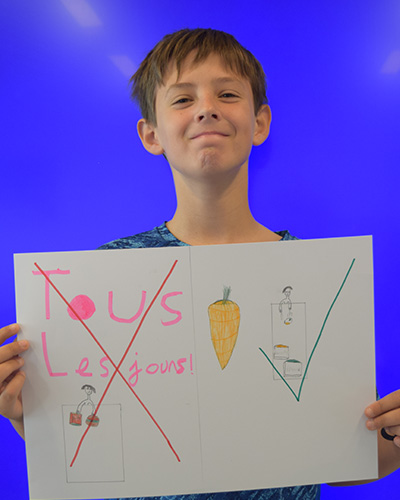 Tous
Les jours!